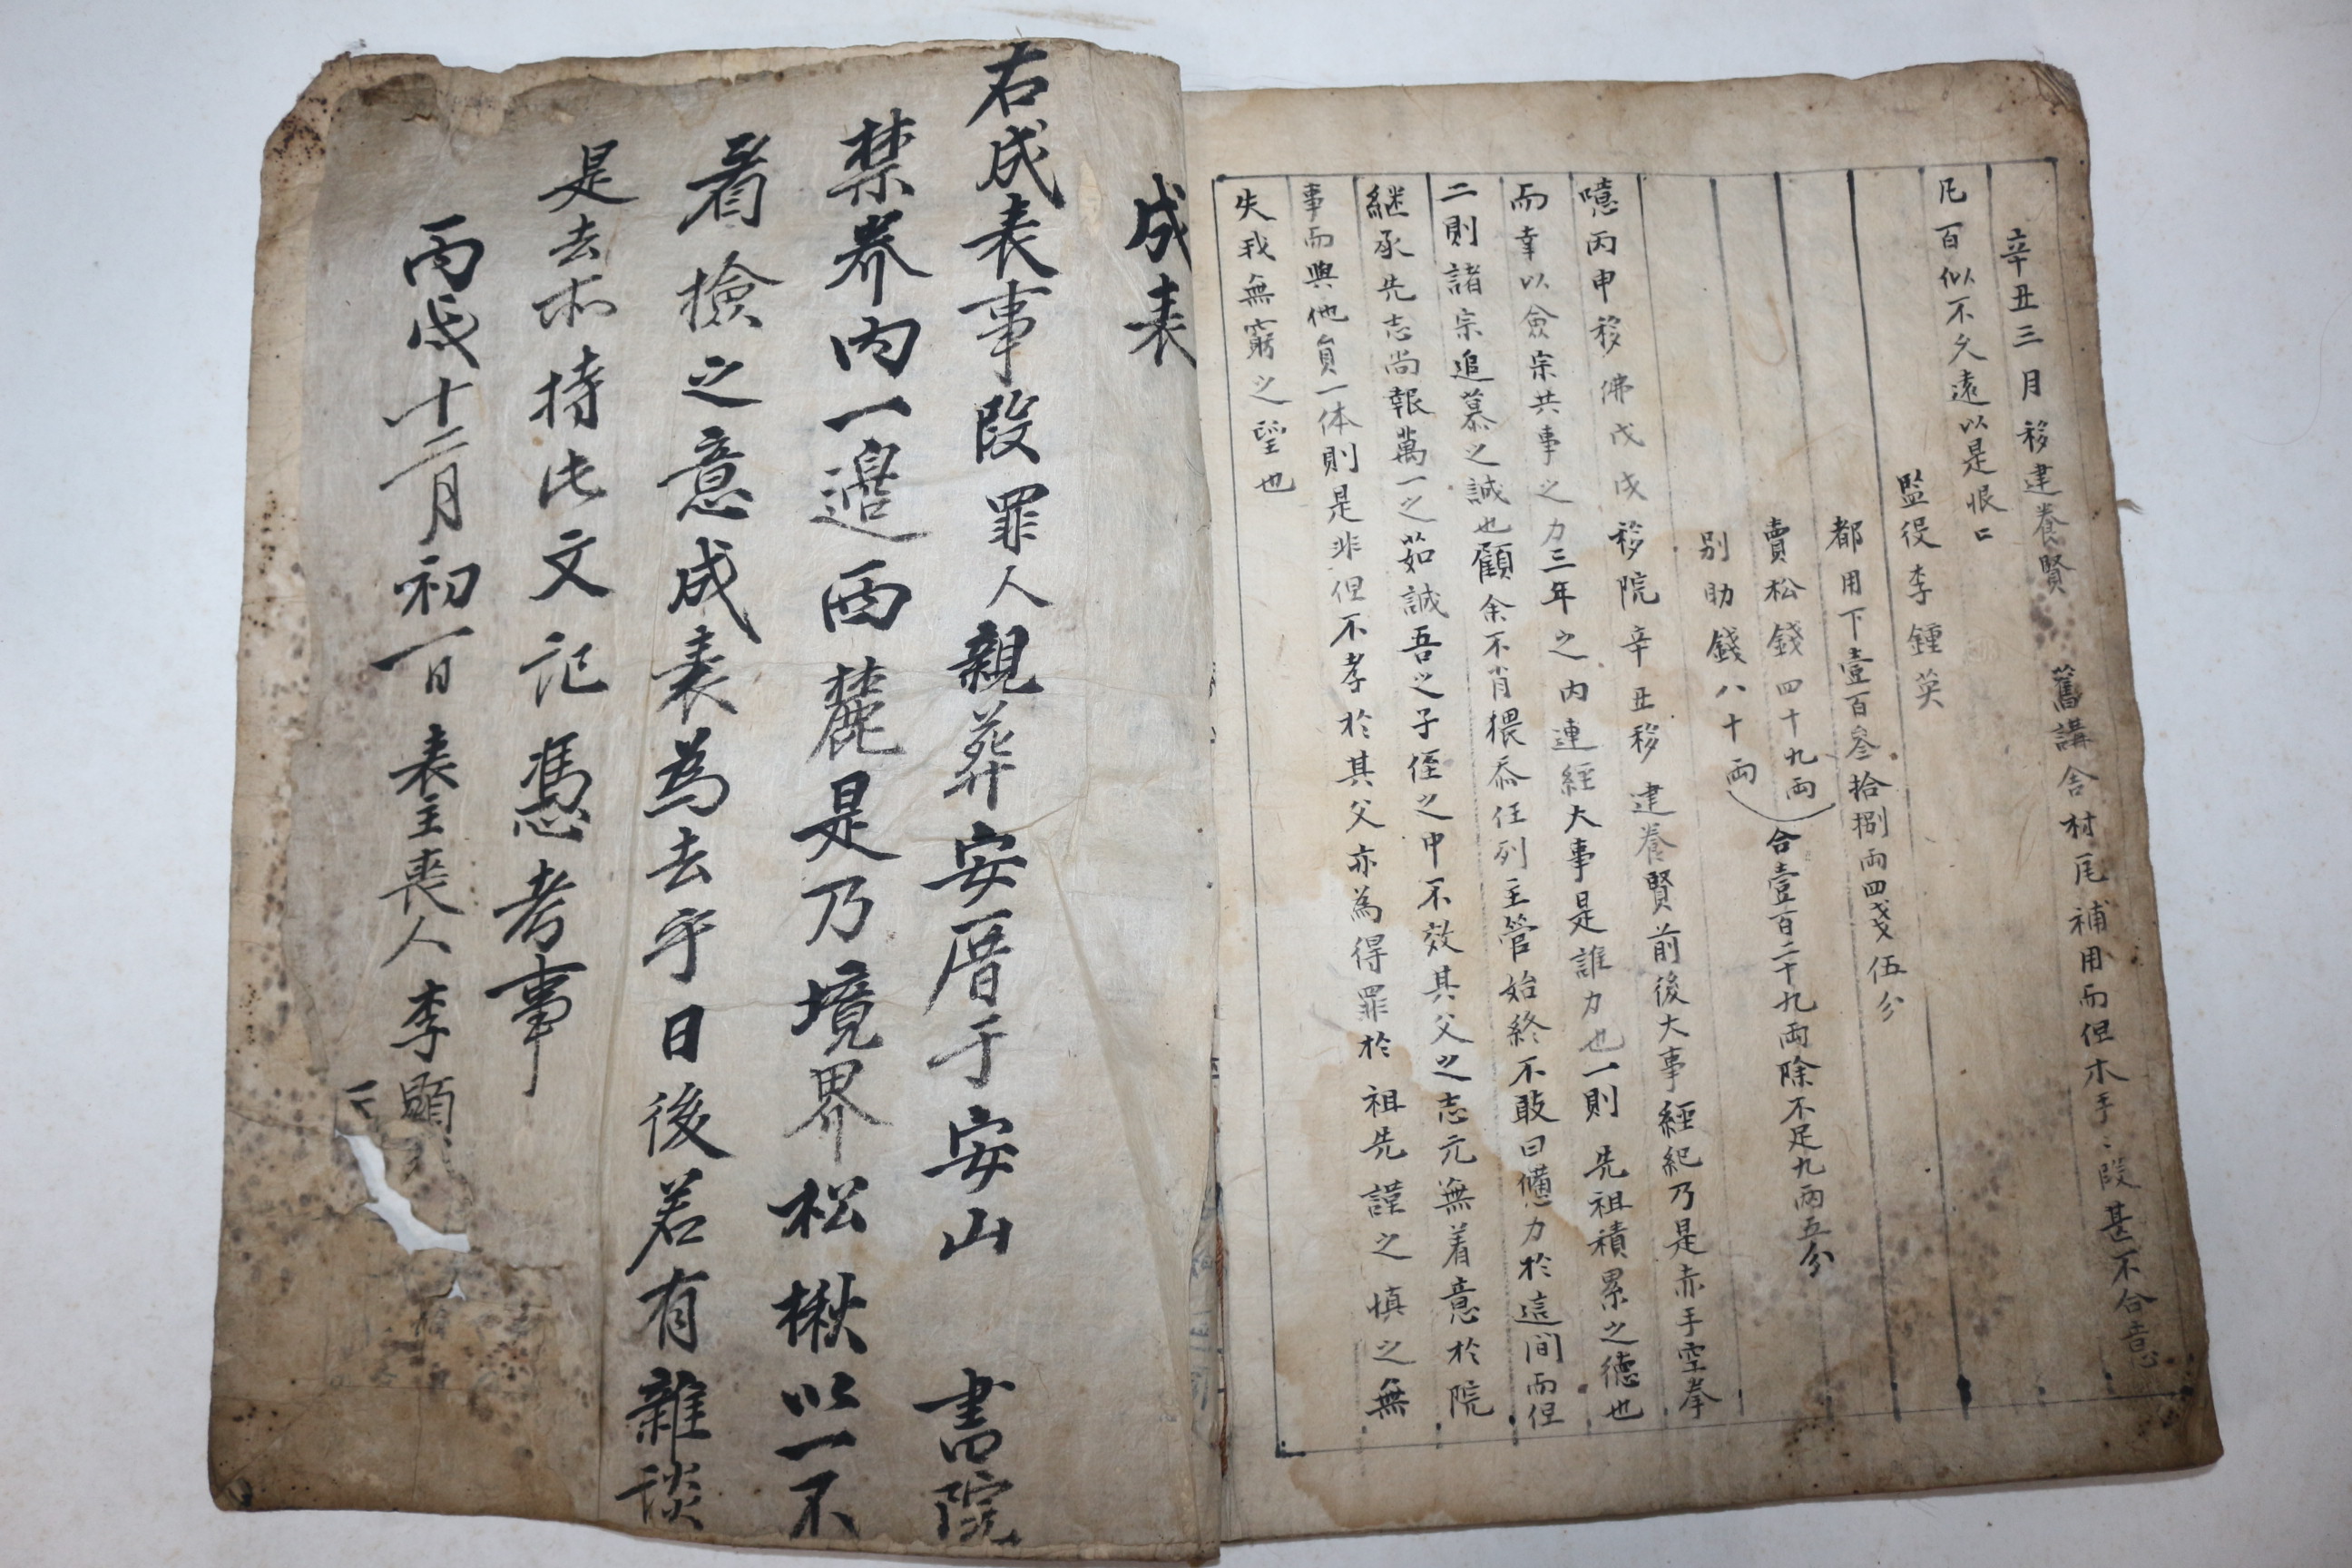 辛丑三月移建養賢 舊講舍材瓦補用而但木手〻段甚不合意
凡百似不久遠以是恨口
監役李鍾英
都用下壹百叄拾捌兩四戔伍分
賣松錢四十九兩
別助錢八十兩
合壹百二十九兩除不足九兩五分
噫丙申移佛戊戌移院辛丑移建養賢前後大事經紀乃是赤手空拳
而幸以僉宗共事之力三年之內連經大事是誰力也一則 先祖積累之德也
二則諸宗追慕之誠也顧余不肖猥忝任列主管始終不敢曰憊力於這間而但
継承先志尚報萬一之茹誠吾之子侄之中不效其父之志元無着意於院
事而與他員一体則是非但不孝於其父亦為得罪於 祖先謹之慎之無
失我無窮之望也
成表
右成表事段罪人親葬安厝于安山 書院
禁養內一邊西麓是乃境界松楸以一不
看檢之意成表為去乎日後若有雜談
是去等持此文記憑考事
丙戌十二月初一日 表主喪人李顯